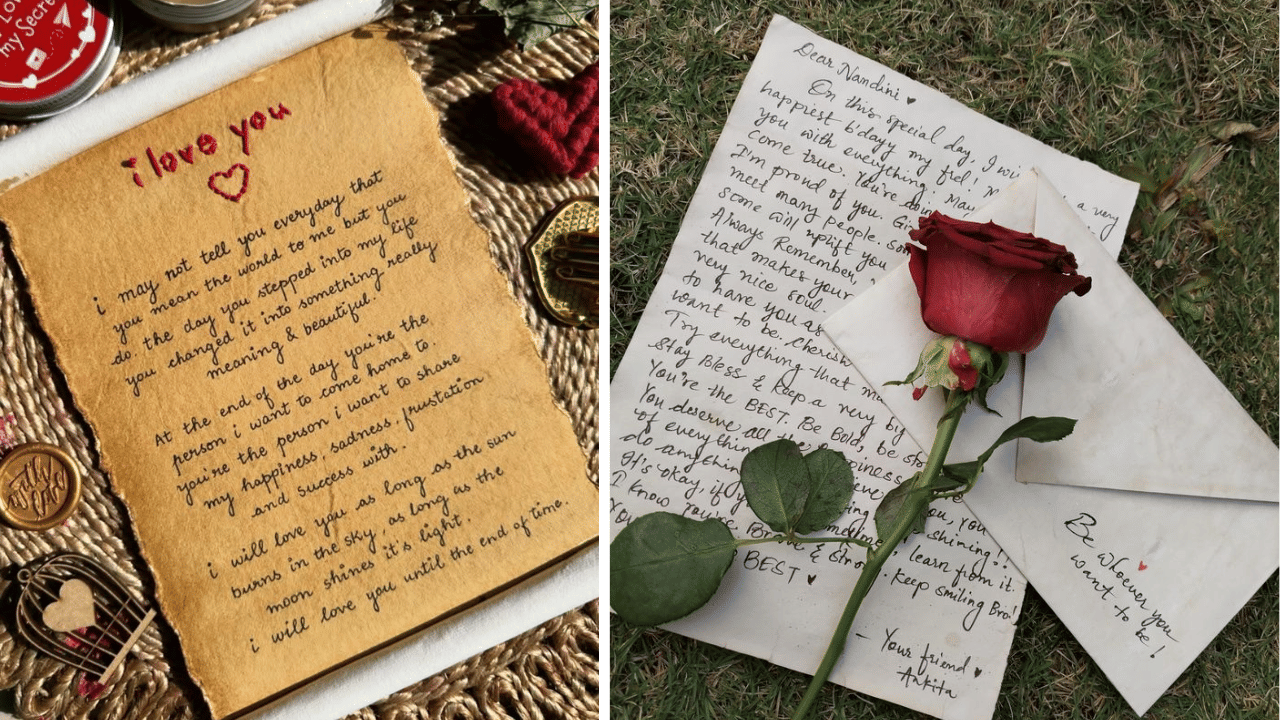 I Lov
my Secre
i love you
i may not tell you everyday that
you mean the world to me but you
do. the day you stepped into my life
you changed it into something really
meaning & beautiful.
At the end of the day you're the
person i want to come home to.
you're the person i want to share
my happiness, sadness, frustation
and success with.
i will love you as long as the sun
burns in the sky, as long as the
moon shines it's light.
i will love you until the end of time.
with
love
Dear Nandini
On this special day, I wi
a very
happiest b'dayy my frd!
you with everything. May
come true. You're doin
I'm proud of you.
meet many people. so
some will uplift you
Always Remember,
that makes your
very nice soul.
to have you as
want to be. Cherish
Try everything that ma
Stay Bless & keep a very big
You're the BEST. Be Bold, be st
You deserve all the happiness
of everything
do anything
you, you
shining!!
It's okay, if y
learn from it.
I know you're Br & Stro
Keep smiling Bro!
BEST
- Your friend
Ankita
Be whoever you
want to be!